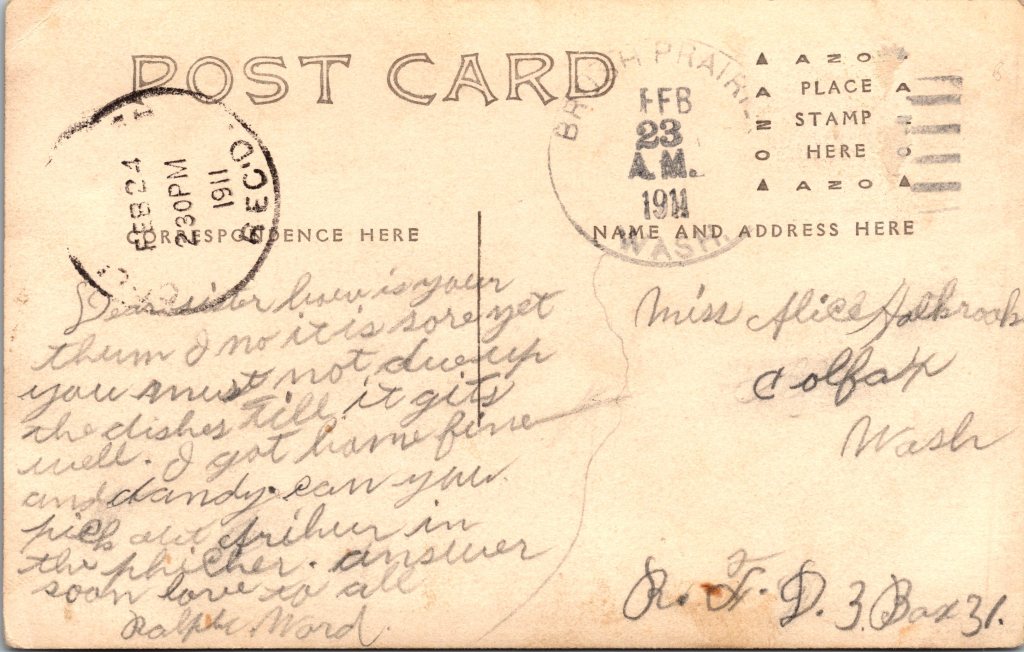 POST CARD
FEB 24
230PM
1911
REC'D
FEB
23
A.M.
1911
WASH.
AZO
PLACE
STAMP
HERE
AZO
CORRESPONDENCE HERE
NAME AND ADDRESS HERE
Dear sister how is your
thum I no it is sore yet
you must not due up
the dishes till it gits
well. I got home fine
and dandy. can you
pick out in
the phicher. answer
soon love to all
Ralph Ward.
Miss Alice Holbrook
Colfax
Wash
R. F. D. 3 Box 31.